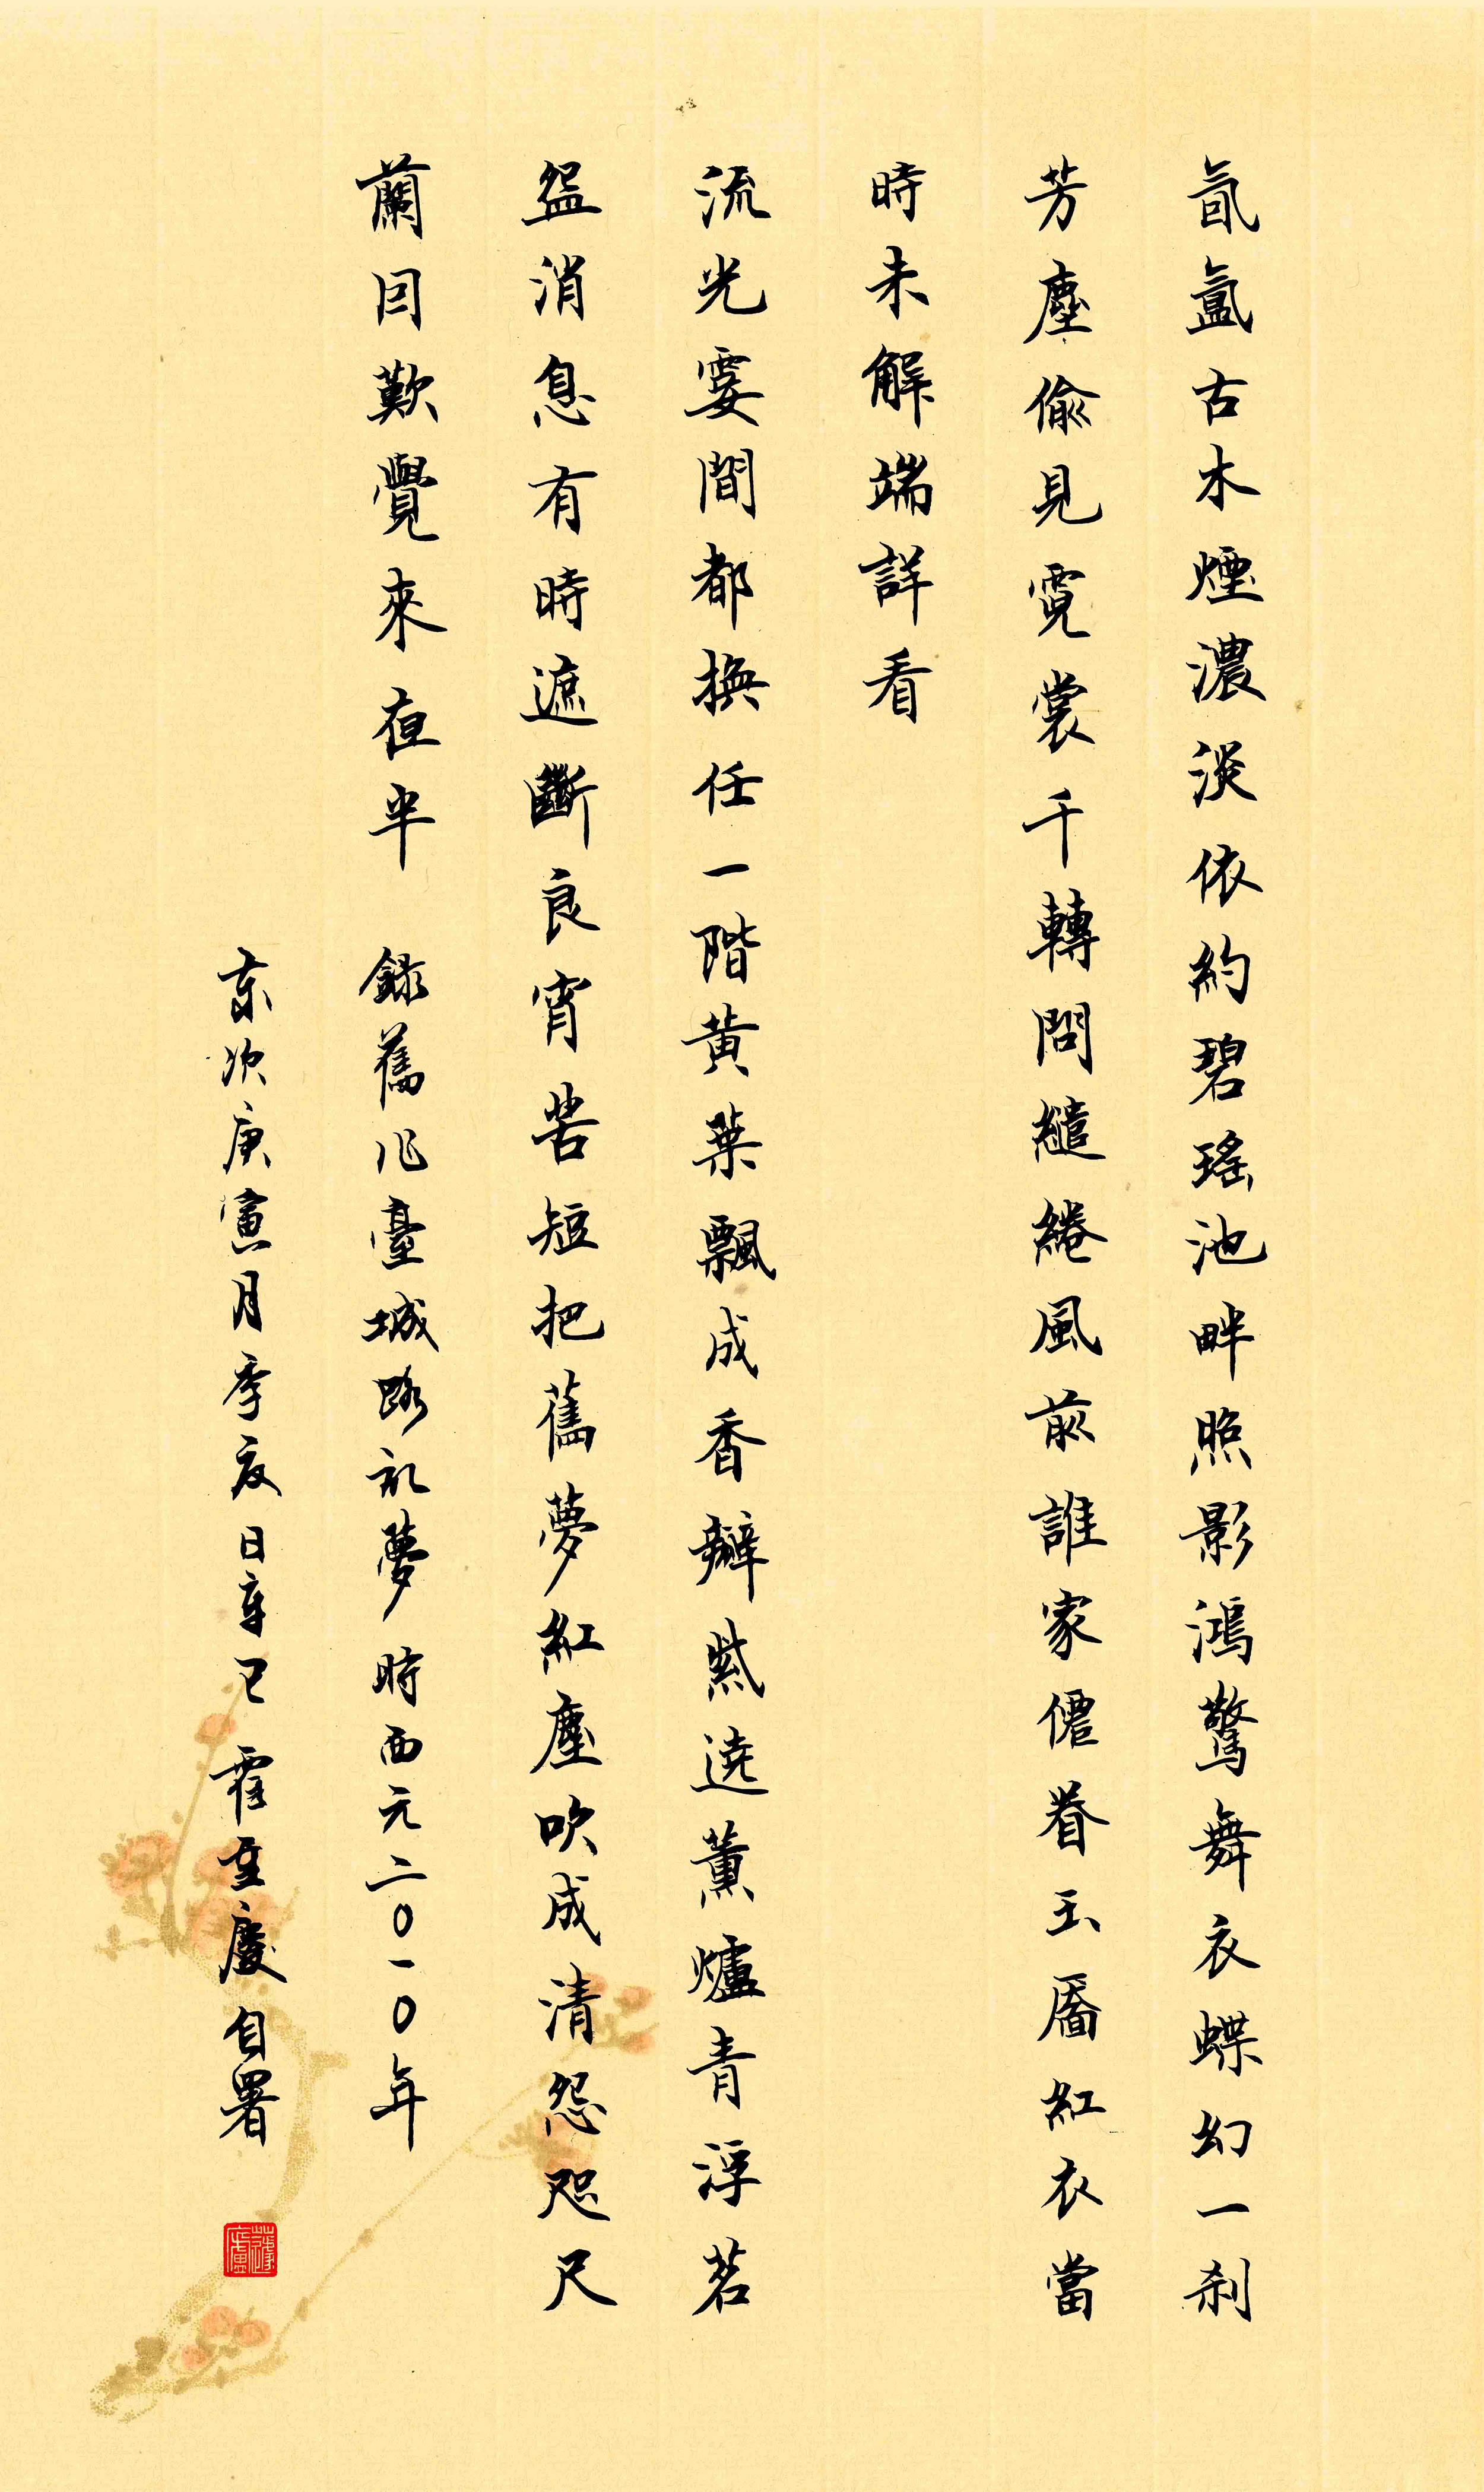 氤氳古木煙濃淡依約碧瑤池畔照影鴻驚舞衣蝶幻一刹
芳塵偸見霓裳千轉問繾綣風前誰家僊眷玉靨紅衣當
時未解端詳看
流光霎間都換任一階黃葉飄成香瓣紫遶薰爐青浮茗
盌消息有時遮斷良宵苦短把舊夢紅塵吹成清怨咫尺
蘭因歎覺來夜半 錄舊作臺城路記夢時西元二〇一〇年
歲次庚寅月季夏日辛巳 霍重慶自署